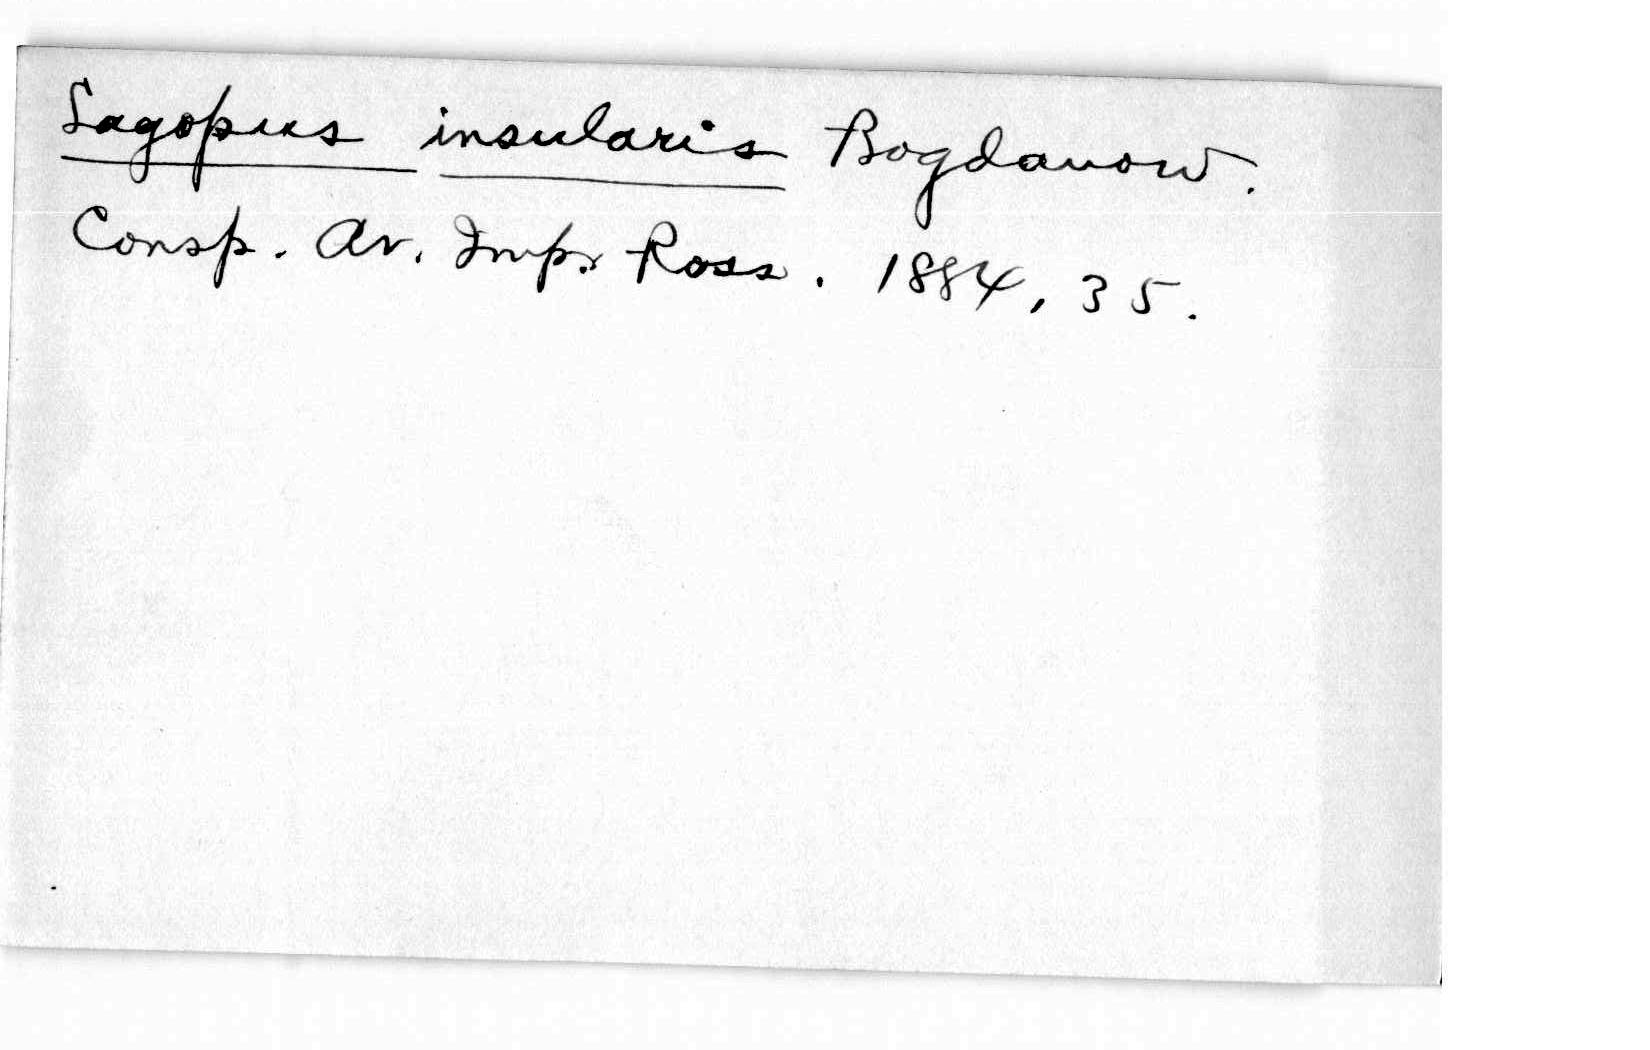 Lagopus insularis Bogdanow.
Consp. Av. Imp. Ross. 1884, 35.